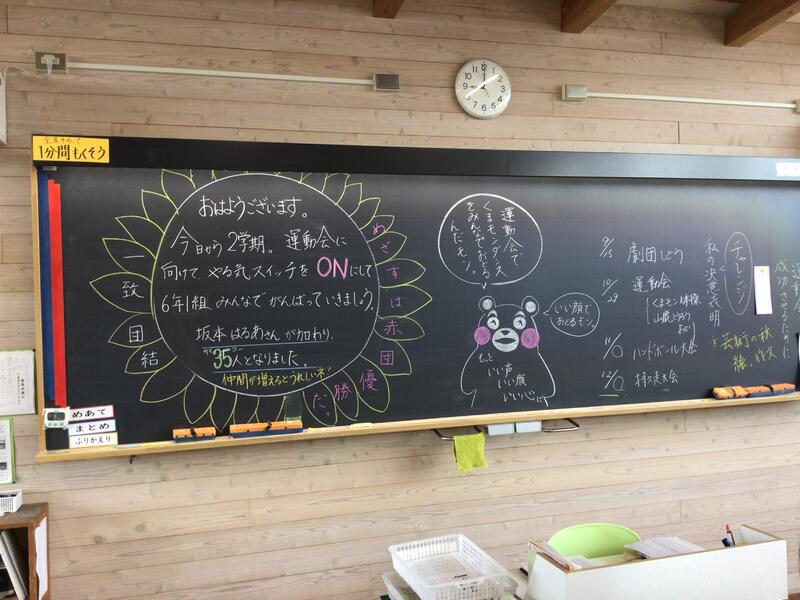 1分間もくそう
おはようございます。
今日から2学期。運動会に
向けて、やる気スイッチをONにして
6年1組、みんなでがんばっていきましょう。
坂本はるあさんが加わり、
35人となりました。
仲間が増えるとうれしいネ!
一致団結
めざすは赤団
優勝だ。
運動会で
くまモンダンス
をみんなでおどる
んだモン。
いい顔で
おどるモン。
もっと
いい声
いい顔
いい心に
9/15 劇団しどう
10/29 運動会
くまモン体操
山鹿とうろう
おどり
11/0 ハンドボール大会
12/0 持久走大会
チャレンジ
私の決意表明
運動
成功させるために
芸術の秋
めあて
まとめ
ふりかえり